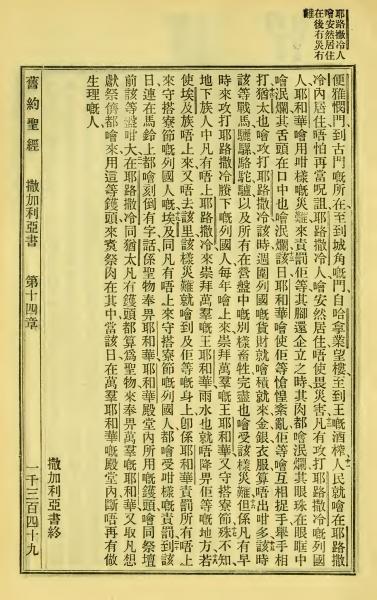 耶路撒冷人
噲安然居住
在後冇災冇
難
便雅憫門、到古門嘅所在、至到城角嘅門、自哈拿業望樓、至到王嘅酒榨、人民就噲在耶路撒
冷內居住、唔怕再當呪詛、耶路撒冷人、噲安然居住、唔使畏災害、凡有攻打耶路撒冷嘅列國
人、耶和華噲用咁樣嘅災難、來責罰佢等、其腳還企立之時、其肉都噲泯爛、其眼珠在眼眶中
噲泯爛、其舌頭在口中也噲泯爛、該日耶和華噲使佢等愴惶紊亂、佢等噲互相捉手舉手相
打、猶太也噲攻打耶路撒冷、該時週圍列國嘅貨財、就噲積就來、金銀衣服、算唔出咁多、該時
該等戰馬騾駱駝驢、以及所有在營盤中嘅別樣畜牲、完盡也噲受該樣災難、但係凡有早
時來攻打耶路撒冷賸下嘅列國人、每年噲上來崇拜萬羣嘅王耶和華、又守搭寮節、殊不知
地下族人中、凡有唔上耶路撒冷來崇拜萬羣嘅王耶和華、雨水也就唔降畀佢等嘅地方、若
使埃及族、唔上來、又唔去、該里該樣災難就噲到及佢等嘅身上、卽係耶和華責罰所有唔上
來守搭寮節嘅列國人嘅、埃及同凡有唔上來守搭寮節嘅列國人、都噲受咁樣嘅責罰、到該
日連在馬鈴上、都噲刻倒有字話、係聖物奉畀耶和華、耶和華殿堂內所用嘅鑊頭、噲同祭壇
前該等盤咁大、在耶路撒冷同猶太凡有鑊頭、都算爲聖物、來奉畀萬羣嘅耶和華、又取凡想
獻祭儕、都噲來用這等鑊頭、來烹祭肉在其中、當該日在萬羣耶和華嘅殿堂內、斷唔再有做
生理嘅人、
撒加利亞書終
舊約聖經 撒加利亞書 第十四章 一千三百四十九